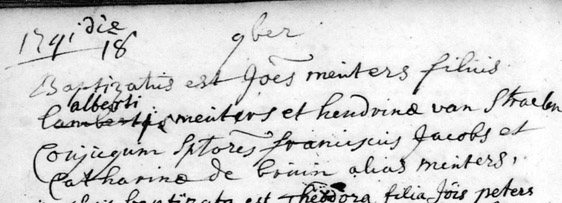 1791 die 18 9ber
Baptizatus est Joẽs menters filius
alberti
lambertis menters et hendrinæ van Straelen
Conjugum Sptores franciscus Jacobs et
Catharina de bruin alias menters,
baptizata est Theodora filia Jõis peters